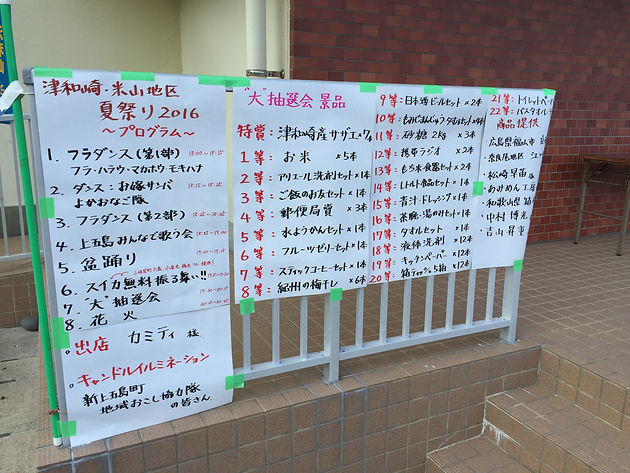 津和崎・米山地区
夏祭り2016
〜プログラム〜
1. フラダンス(第1部) 18:00〜18:15
フラ・ハラウ・マカホウ・モキハナ
2. ダンス:お嫁サンバ
よかおなご隊
3. フラダンス(第2部)
4. 上五島みんなで歌う会
5. 盆踊り
6. スイカ無料振る舞い!!
7. "大"抽選会
8. 花火
。出店 カミティ 様
。キャンドルイルミネーション
新上五島町
地域おこし協力隊
の皆さん
"大"抽選会 景品
特賞:津和崎産サザエ×7
1等:お米 ×5本
2等:アリエール洗剤セット×1本
3等:ご飯のお友セット×1本
4等:郵便局賞 ×3本
5等:水ようかんセット×1本
6等:フルーツゼリーセット×1本
7等:スティックコーヒーセット×1本
8等:紀州の梅干し ×6本
9等:日本酒・ビールセット×2本
10等:もみじまんじゅう
11等:砂糖2kg ×3本
12等:携帯ラジオ ×2本
13等:もう米・食器セット×2本
14等:レトルト食品セット×1本
15等:青汁・ドレッシング×1本
16等:茶碗・湯のみセット×1本
17等:タオルセット ×1本
18等:液体洗剤 ×12本
19等:キッチンペーパー ×12本
20等:箱ティッシュ5箱 ×12本
21等:トイレットペーパ
22等:バスタオル
商品提供
広島県福山市
奈良尾地区
松崎早苗
あめめん工房
和歌山県
中村博光
吉山昇